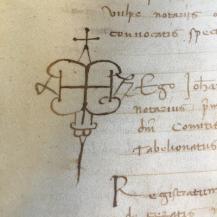 vulpe notarius
convocatis spec
Ego Joha
notarius
dm Comitis
Tabelionatus
Registratum